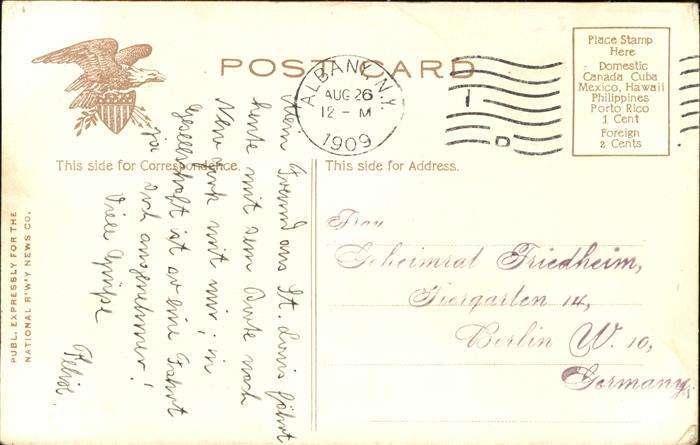 POST CARD
ALBANY, N.Y.
AUG 26
12 - M
1909
Place Stamp
Here
Domestic
Canada Cuba
Mexico, Hawaii
Philippines
Porto Rico
1 Cent
Foreign
2 Cents
This side for Correspondence.
This side for Address.
PUBL. EXPRESSLY FOR THE
NATIONAL R'WY NEWS CO.
Mein Freund aus St. Louis fährt
heute mit dem Boote nach
New York mit mir; in
Gesellschaft ist so eine Fahrt
ja
doch angenehmer!
Viele Grüße
Felix.
Frau
Geheimrat Friedheim,
Tiergarten 14,
Berlin W. 10,
Germany.